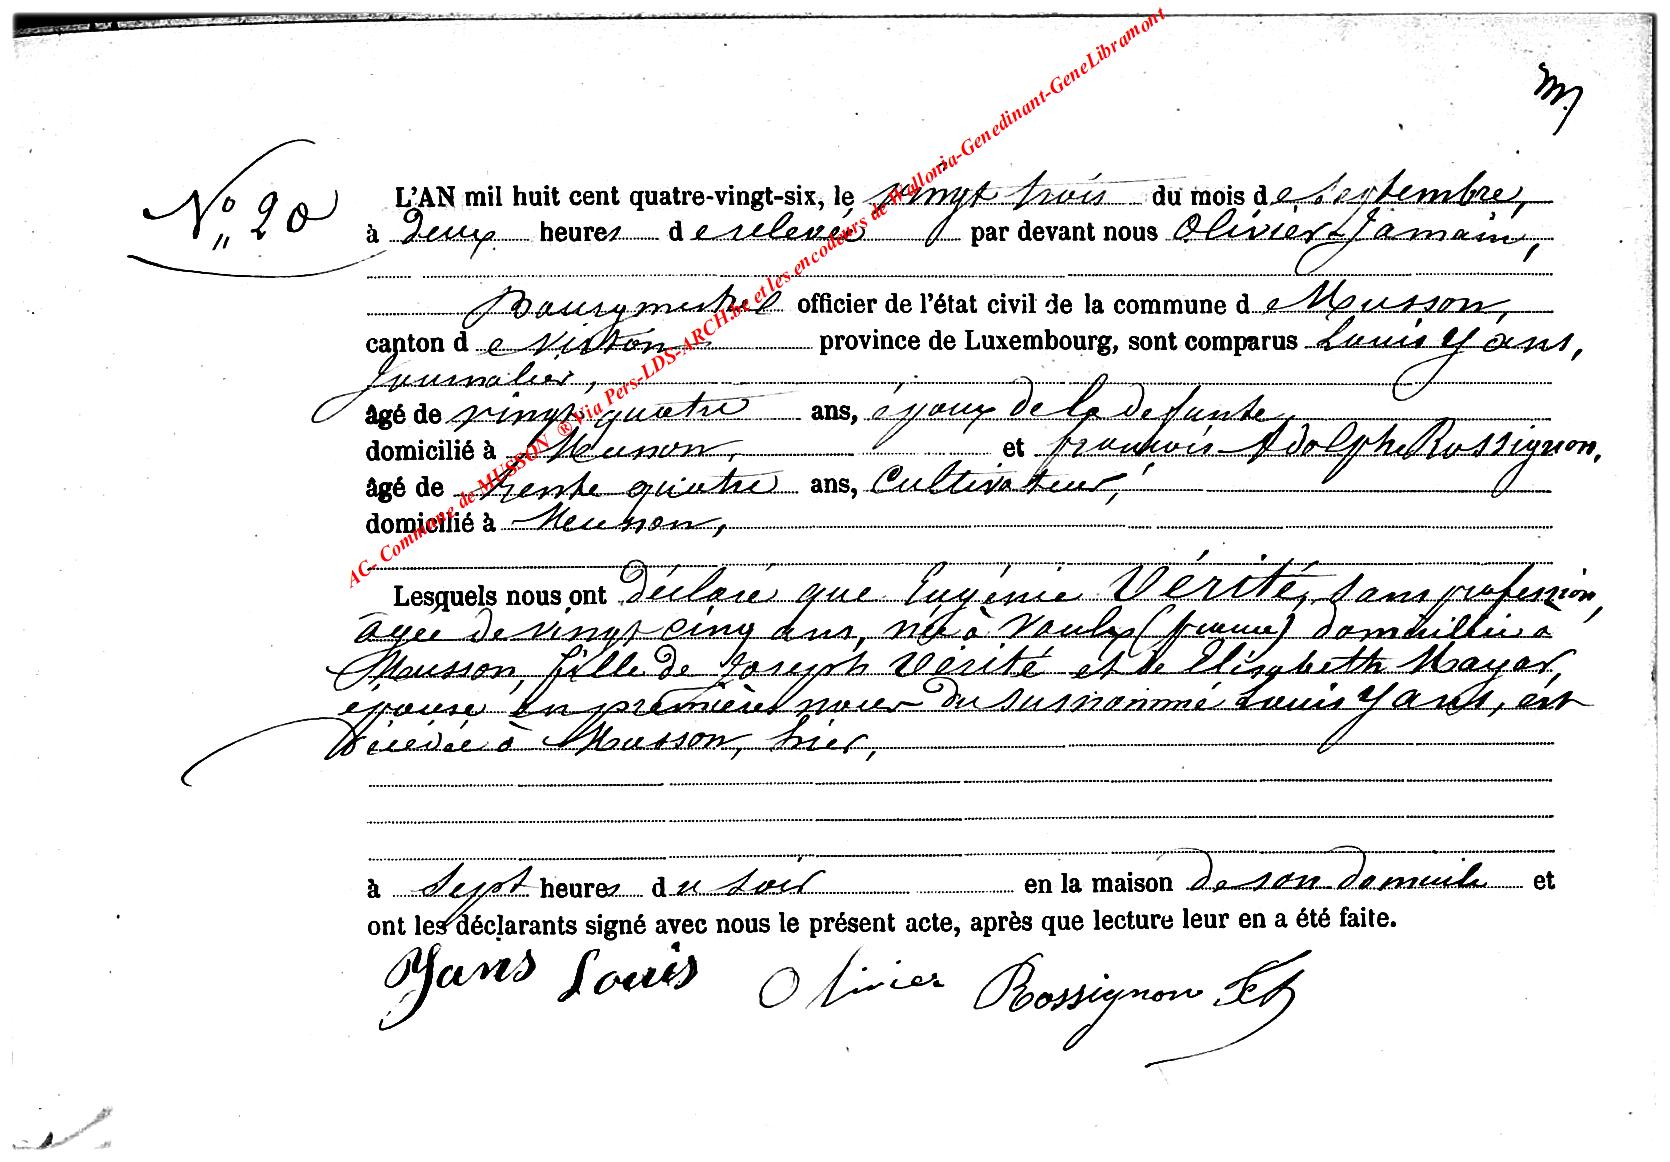 m
N° 20
L'AN mil huit cent quatre-vingt-six, le vingt trois du mois de septembre,
à deux heures de relevée par devant nous Olivier Jamain,
Bourgmestre officier de l'état civil de la commune de Musson,
canton de Virton province de Luxembourg, sont comparus Louis Yans,
Journalier,
âgé de vingt quatre ans, époux de la defunte,
domicilié à Musson, et françois Adolphe Rossignon,
âgé de trente quatre ans, Cultivateur,
domicilié à Musson,
Lesquels nous ont déclaré que Eugénie Vérité, sans profession,
âgée de vingt cinq ans, née à Vaulx (france) domiciliée à
Musson, fille de Joseph Vérité et de Elisabeth Mayar,
épouse en premières noces du susnommé Louis Yans, est
décédée à Musson, hier,
à sept heures du soir en la maison de son domicile et
ont les déclarants signé avec nous le présent acte, après que lecture leur en a été faite.
Yans Louis Olivier Rossignon
AC- Commune de MUSSON ® Via Pers-LDS-ARCH.be et les encodeurs de Wallonia-Genedinant-GeneLibramont